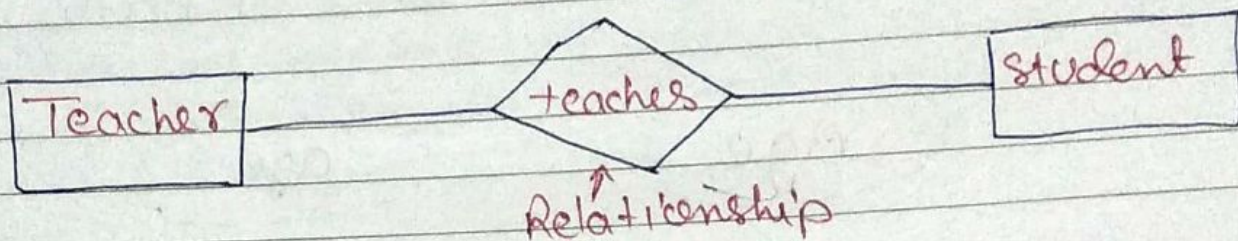 Teacher
teaches
student
Relationship